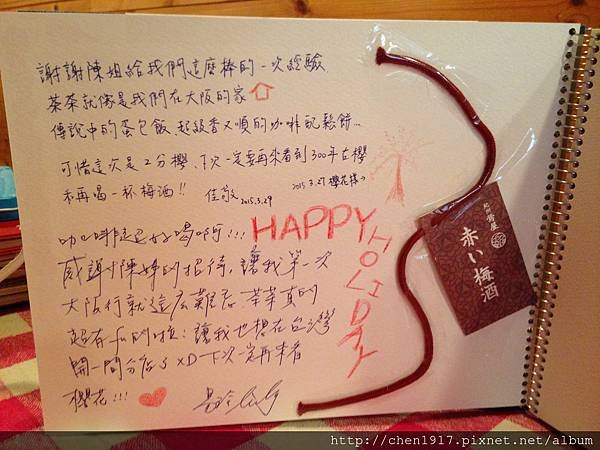 謝謝陳姐給我們這麼棒的一次經驗
茶茶就像是我們在大阪的家
傳說中的蛋包飯、超級香又順的咖啡配鬆餅...
可惜這次是2分櫻、下次一定要再來看到300年古櫻
和再喝一杯梅酒!! 佳敬 2015.3.29
2015.3.27 櫻花樣→
HAPPY
HOLIDAY
咖啡超好喝啊!!!
感謝陳姊的招待,讓我第一次
大阪行就這麼難忘 茶茶真的
超有 的啦:讓我也想在台灣
開一間分店 XD 下次一定再來看
櫻花!!!
紀州
赤い梅酒
http://chen1917.pixnet.net/album